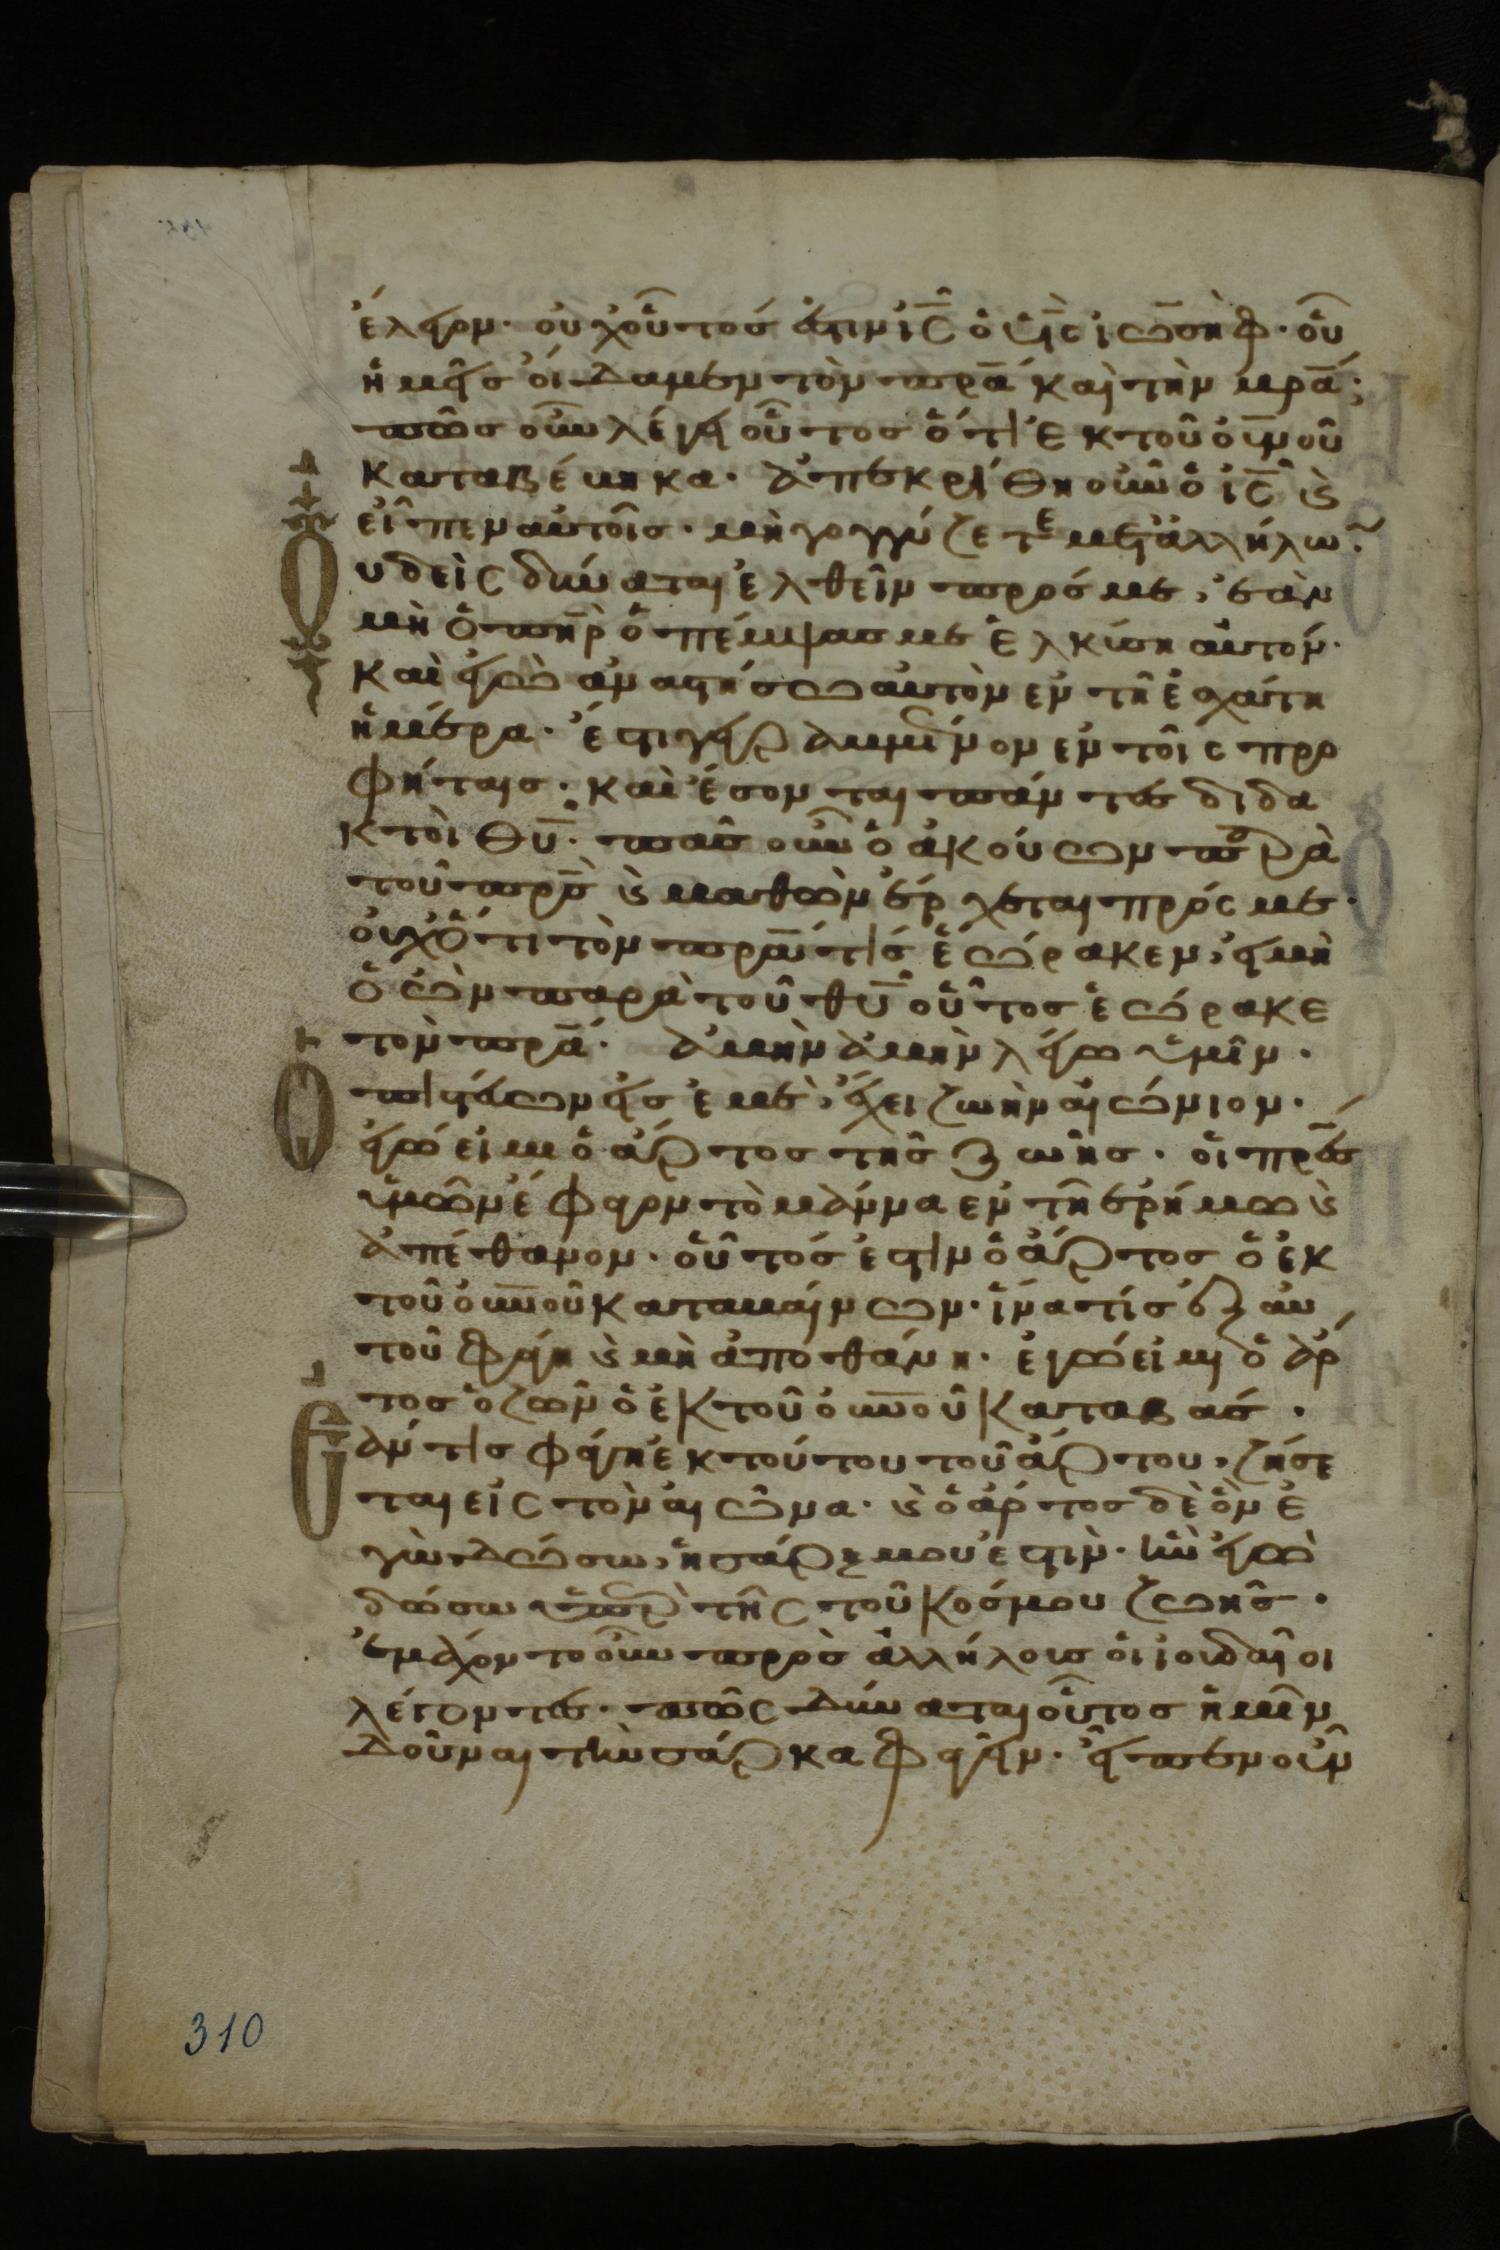 ἔλεγον· οὐχ οὗτός ἐστιν ι̅ς̅ ὁ υ̅ι̅ς̅ ἰωσὴφ· οὗ
ἡμεῖς οἴδαμεν τὸν π̅ρ̅α̅ καὶ τὴν μ̅ρ̅α̅;
πῶς οὖν λέγει οὗτος ὅτι ἐκ τοῦ ο̅υ̅ν̅οῦ
καταβέβηκα· ἀπεκρίθη οὖν ὁ ι̅ς̅ ϗ
εἶπεν αὐτοῖς· μὴ γογγύζετε μετ' ἀλλήλω·
Ουδεὶς δύναται ἐλθεῖν πρός με, ἐὰν
μὴ ὁ π̅η̅ρ̅ ὁ πέμψας με ἑλκύση αὐτόν·
καὶ ἐγὼ ἀναστήσω αὐτὸν ἐν τῆ ἐσχάτη
ἡμέρα· ἔστι γεγραμμένον ἐν τοῖς προ
φήταις· καὶ ἔσονται πάντες διδα
κτοὶ θ̅υ̅· πᾶς οὖν ὁ ἀκούων παρὰ
τοῦ π̅ρ̅ς̅ ϗ μαθὼν ἔρχεται πρός με·
οὐχ ὅτι τὸν π̅ρ̅α̅ τίς ἑώρακεν, εἰ μὴ
ὁ ὢν παρὰ τοῦ θ̅υ̅ οὗτος ἑώρακε
τὸν π̅ρ̅α̅· ἀμὴν ἀμὴν λέγω ὑμῖν·
Ο πιστεύων εἰς ἐμὲ, ἔχει ζωὴν αἰώνιον·
ἐγώ εἰμι ὁ ἄρτος τῆς ζωῆς· οἱ π̅ρ̅ες
ὑμῶν ἔφαγον τὸ μάννα ἐν τῆ ἐρήμω ϗ
ἀπέθανον· οὗτός ἐστιν ὁ ἄρτος ὁ ἐκ
τοῦ ο̅υ̅ν̅οῦ καταβαίνων· ἵνα τίς ἐξ αὐ
τοῦ φάγη ϗ μὴ ἀποθάνη· ἐγώ εἰμι ὁ ἄρ
τος ὁ ζῶν ὁ ἐκ τοῦ ο̅υ̅ν̅οῦ καταβάς·
Εάν τις φάγη ἐκ τούτου τοῦ ἄρτου, ζήσε
ται εἰς τὸν αἰῶνα· ϗ ὁ ἄρτος δὲ ὃν ἐ
γὼ δώσω, ἡ σάρξ μου ἐστιν· ἣν ἐγὼ
δώσω ὑπὲρ τῆς τοῦ κόσμου ζωῆς·
ἐμάχοντο οὖν πρὸς ἀλλήλους οἱ ἰουδαῖοι
λέγοντες· πῶς δύναται οὗτος ἡμῖν
δοῦναι τὴν σάρκα φαγεῖν· εἶπεν οὖν
310